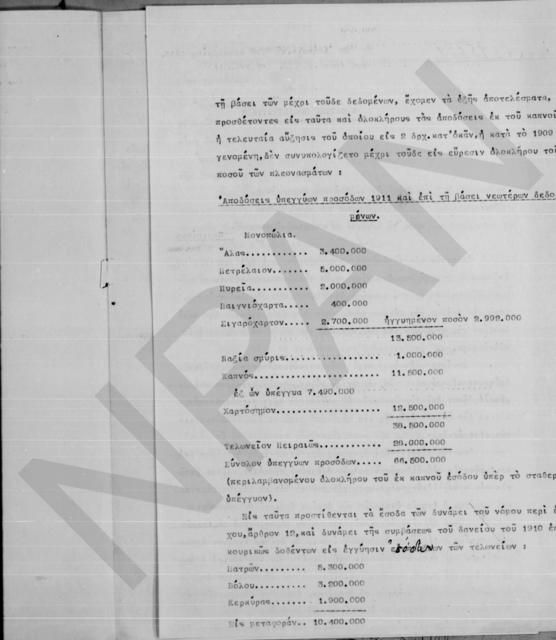 τῇ βάσει τῶν μέχρι τοῦδε δεδομένων, ἔχομεν τὰ ἑξῆς ἀποτελέσματα,
προσθέτοντες εἰς ταῦτα καὶ ὁλοκλήρους τὰς ἀποδόσεις ἐκ τοῦ καπνοῦ
ἡ τελευταία αὔξησις τοῦ ὁποίου εἰς 2 δρχ. κατ' ὀκᾶν, ἡ κατὰ τὸ 1909
γενομένη, δὲν συνυπολογίζετο μέχρι τοῦδε εἰς εὕρεσιν ὁλοκλήρου τοῦ
ποσοῦ τῶν πλεονασμάτων :
Ἀποδόσεις ὑπεγγύων προσόδων 1911 καὶ ἐπὶ τῇ βάσει νεωτέρων δεδο
μένων.
Μονοπώλια.
Ἅλας............ 3.400.000
Πετρέλαιον....... 5.000.000
Πυρεῖα........... 2.000.000
Παιγνιόχαρτα..... 400.000
Σιγαρόχαρτον..... 2.700.000 ἠγγυημένον ποσὸν 2.992.000
13.500.000
Ναξία σμύρις................. 1.000.000
Καπνός....................... 11.500.000
ἐξ ὧν ὑπέγγυα 7.490.000
Χαρτόσημον................... 12.500.000
38.500.000
Τελωνεῖον Πειραιῶς........... 28.000.000
Σύνολον ὑπεγγύων προσόδων.... 66.500.000
(περιλαμβανομένου ὁλοκλήρου τοῦ ἐκ καπνοῦ ἐσόδου ὑπὲρ τὸ σταθερ
ὑπέγγυον).
Εἰς ταῦτα προστίθενται τὰ ἔσοδα τῶν δυνάμει τοῦ νόμου περὶ
χου, ἄρθρον 12, καὶ δυνάμει τῆς συμβάσεως τοῦ δανείου τοῦ 1910 ἐπ
κουρικῶς δοθέντων εἰς ἐγγύησιν ἐσόδων τῶν τελωνείων :
Πατρῶν...... 5.300.000
Βόλου....... 3.200.000
Κερκύρας.... 1.900.000
Εἰς μεταφοράν.. 10.400.000
NPAN